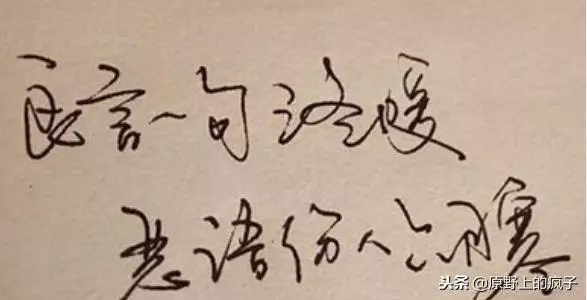 良言一句三冬暖
恶语伤人六月寒
头条 @原野上的疯子